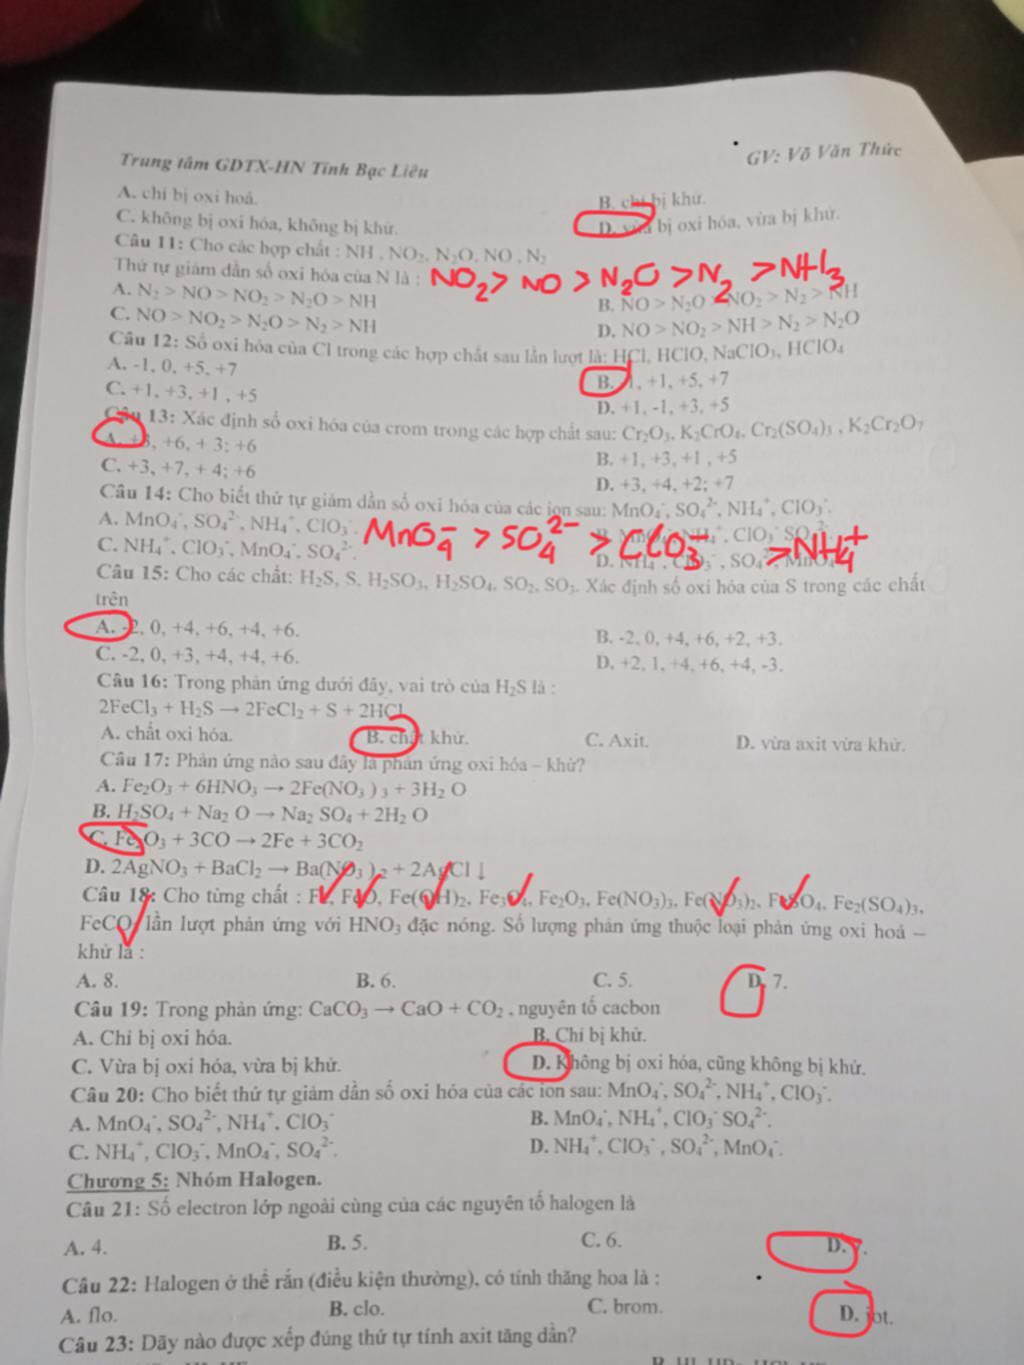 Trung tâm GDTX-HN Tỉnh Bạc Liêu GV: Võ Văn Thức
A. chỉ bị oxi hoá. B. chỉ bị khử.
C. không bị oxi hóa, không bị khử. D. vừa bị oxi hóa, vừa bị khử.
Câu 11: Cho các hợp chất : NH , NO₂, N₂O, NO , N₂
Thứ tự giảm dần số oxi hóa của N là : NO₂ > NO > N₂O > N₂ > NH₃
A. N₂ > NO > NO₂ > N₂O > NH B. NO > N₂O > NO₂ > N₂ > NH
C. NO > NO₂ > N₂O > N₂ > NH D. NO > NO₂ > NH > N₂ > N₂O
Câu 12: Số oxi hóa của Cl trong các hợp chất sau lần lượt là: HCl, HClO, NaClO₃, HClO₄
A. -1, 0, +5, +7 B. -1, +1, +5, +7
C. +1, +3, +1 , +5 D. +1, -1, +3, +5
Câu 13: Xác định số oxi hóa của crom trong các hợp chất sau: Cr₂O₃, K₂CrO₄, Cr₂(SO₄)₃ , K₂Cr₂O₇
A. +3, +6, + 3; +6 B. +1, +3, +1 , +5
C. +3, +7, + 4; +6 D. +3, +4, +2; +7
Câu 14: Cho biết thứ tự giảm dần số oxi hóa của các ion sau: MnO₄⁻, SO₄²⁻, NH₄⁺, ClO₃⁻.
A. MnO₄⁻, SO₄²⁻, NH₄⁺, ClO₃⁻. B. MnO₄⁻, NH₄⁺, ClO₃⁻ SO₄²⁻.
MnO₄⁻ > SO₄²⁻ > ClO₃⁻ > NH₄⁺
C. NH₄⁺, ClO₃⁻, MnO₄⁻, SO₄²⁻. D. NH₄⁺, ClO₃⁻, SO₄²⁻, MnO₄⁻
Câu 15: Cho các chất: H₂S, S, H₂SO₃, H₂SO₄, SO₂, SO₃. Xác định số oxi hóa của S trong các chất
trên
A. -2, 0, +4, +6, +4, +6. B. -2, 0, +4, +6, +2, +3.
C. -2, 0, +3, +4, +4, +6. D. +2, 1, +4, +6, +4, -3.
Câu 16: Trong phản ứng dưới đây, vai trò của H₂S là :
2FeCl₃ + H₂S → 2FeCl₂ + S + 2HCl
A. chất oxi hóa. B. chất khử. C. Axit. D. vừa axit vừa khử.
Câu 17: Phản ứng nào sau đây là phản ứng oxi hóa – khử?
A. Fe₂O₃ + 6HNO₃ → 2Fe(NO₃ ) ₃ + 3H₂ O
B. H₂SO₄ + Na₂ O → Na₂ SO₄ + 2H₂ O
C. Fe₂O₃ + 3CO → 2Fe + 3CO₂
D. 2AgNO₃ + BaCl₂ → Ba(NO₃ ) ₂ + 2AgCl ↓
Câu 18: Cho từng chất : Fe, FeO, Fe(OH)₂, Fe₃O₄, Fe₂O₃, Fe(NO₃)₃, Fe(NO₃)₂, FeSO₄, Fe₂(SO₄)₃,
FeCO₃ lần lượt phản ứng với HNO₃ đặc nóng. Số lượng phản ứng thuộc loại phản ứng oxi hoá –
khử là :
A. 8. B. 6. C. 5. D. 7.
Câu 19: Trong phản ứng: CaCO₃ → CaO + CO₂ , nguyên tố cacbon
A. Chỉ bị oxi hóa. B. Chỉ bị khử.
C. Vừa bị oxi hóa, vừa bị khử. D. Không bị oxi hóa, cũng không bị khử.
Câu 20: Cho biết thứ tự giảm dần số oxi hóa của các ion sau: MnO₄⁻, SO₄²⁻, NH₄⁺, ClO₃⁻.
A. MnO₄⁻, SO₄²⁻, NH₄⁺, ClO₃⁻ B. MnO₄⁻, NH₄⁺, ClO₃⁻ SO₄²⁻.
C. NH₄⁺, ClO₃⁻, MnO₄⁻, SO₄²⁻. D. NH₄⁺, ClO₃⁻ , SO₄²⁻, MnO₄⁻.
Chương 5: Nhóm Halogen.
Câu 21: Số electron lớp ngoài cùng của các nguyên tố halogen là
A. 4. B. 5. C. 6. D. 7.
Câu 22: Halogen ở thể rắn (điều kiện thường), có tính thăng hoa là :
A. flo. B. clo. C. brom. D. iot.
Câu 23: Dãy nào được xếp đúng thứ tự tính axit tăng dần?